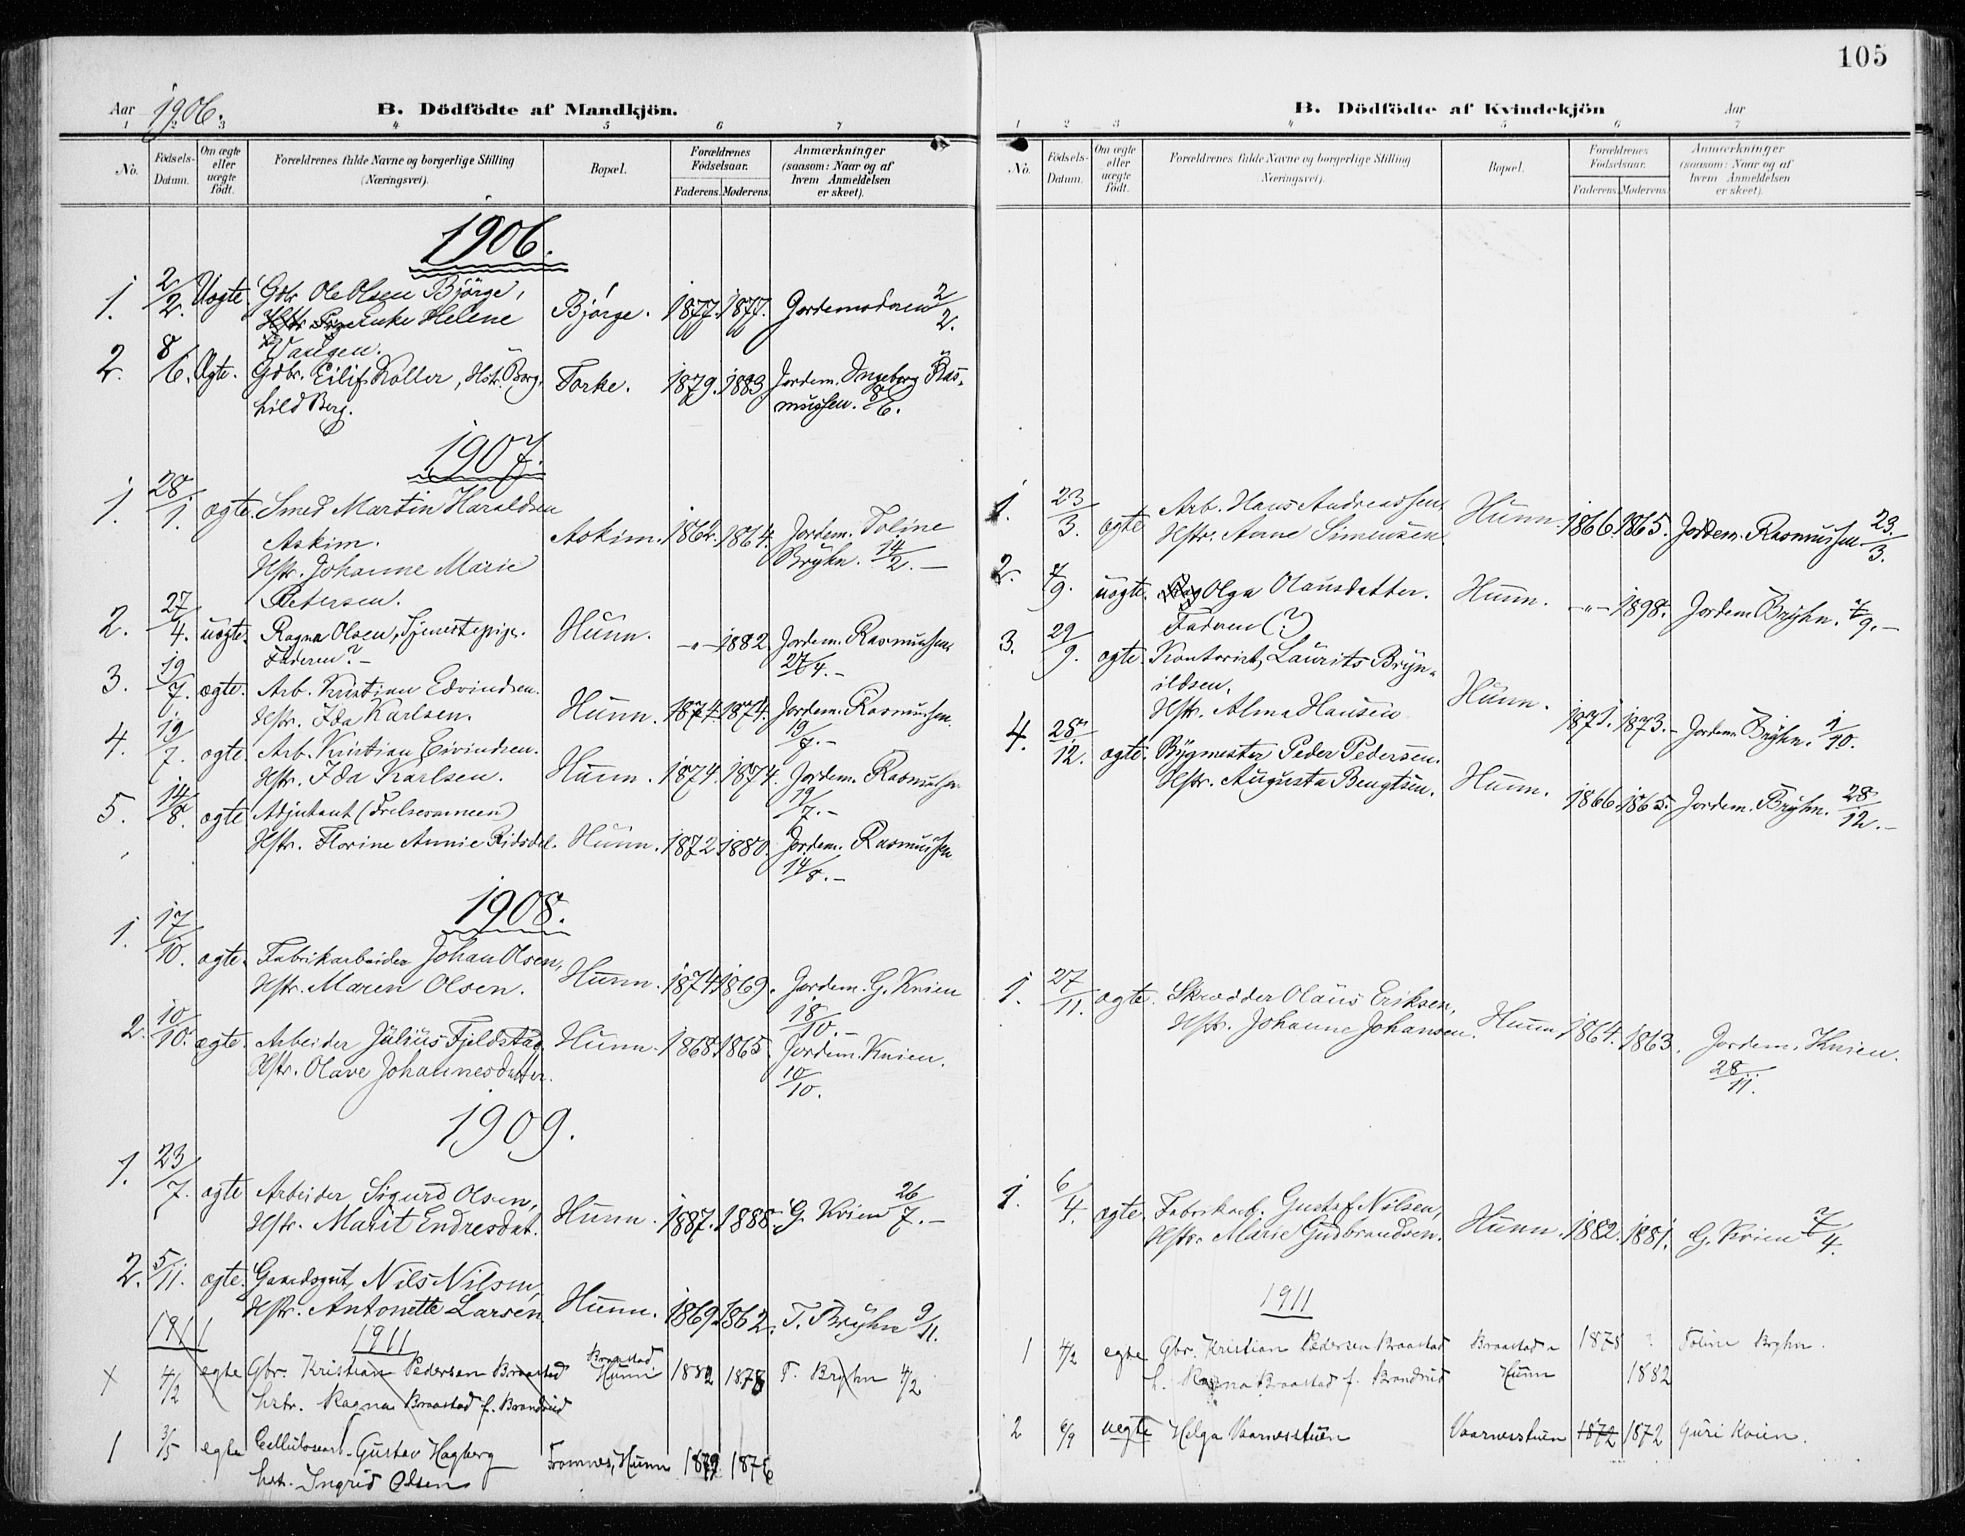 105
Aar 1906.
B. Dödfödte af Mandkjön.
1 2 3 4 5 6 7
No.
Födsels-Datum.
Om ægte eller uægte født.
Forældrenes fulde Navne og borgerlige Stilling (Næringsvei).
Bopæl.
Forældrenes Födselsaar.
Faderens. Moderens.
Anmærkninger (saasom: Naar og af hvem Anmeldelsen er skeet).
1906.
1. 2/2. Uægte. Gbr Ole Olsen Bjørge, Bjørge. 1877. 1877. Jordemoderen 2/2.
Enke Helene
Vangen.
2. 8/6. Ægte. Gdbr. Eilif Koller, Hstr. Borg- Torke. 1879. 1883 Jordem. Ingeborg Ras-
hild Berg. mussen. 8/6.
1907.
1. 28/1. ægte. Smed Martin Haraldsen
Askim. Askim. 1862. 1864. Jordem. Toline
Hstr. Johanne Marie Bryhn. 14/2. —
Petersen.
2. 27/4. uægte. Ragna Olsen, Tjenestepige. Hunn. —"— 1882 Jordem. Rasmussen
Faderen? — 27/4. —
3. 19/7. ægte. Arb. Kristian Edvindsen. Hunn. 1874. 1874. Jordem. Rasmussen.
Hstr. Ida Karlsen. 19/7. —
4. 19/7. ægte. Arb. Kristian Eivindsen. Hunn. 1874. 1874. Jordem. Rasmussen
Hstr. Ida Karlsen. 19/7. —
5. 14/8. ægte Adjutant (Frelsesarmeen)
Hstr. Florine Annie Ridsdel. Hunn. 1872 1880. Jordem. Rasmussen
14/8. —
1908.
1. 17/10. ægte. Fabrikarbeider Johan Olsen, Hunn. 1874. 1869. Jordem. G. Kvien
Hstr. Maren Olsen. 18/10. —
2. 10/10. ægte. Arbeider Julius Fjeldstad Hunn. 1868. 1865. Jordem. Kvien.
Hstr. Olave Johannesdatter. 10/10.
1909.
1. 23/7. ægte Arbeider Sigurd Olsen, Hunn. 1887. 1888. G. Kvien 26/7. —
Hstr. Marit Endresdat.
2. 5/11. ægte. Gaardsgut, Nils Nilsen, Hunn. 1869. 1862. T. Bryhn 9/11.
Hstr. Antonette Larsen.
1911 1911
x 4/2 egte Gbr. Kristian Pedersen Braastad Braastad Hunn 1882 1878 T. Bryhn 4/2
hstr. Ragna Braastad f. Brandrud
1 3/5 egte Cellulosearb. Gustav Hagberg Hunn 1879 1876
hstr. Ingrid Olsen
B. Dödfödte af Kvindekjön
Aar
1 2 3 4 5 6 7
No.
Födsels-Datum.
Om ægte eller uægte födt.
Forældrenes fulde Navne og borgerlige Stilling (Næringsvei).
Bopæl.
Forældrenes Födselsaar.
Faderens. Moderens.
Anmærkninger (saasom: Naar og af hvem Anmeldelsen er skeet).
1. 23/3. ægte Arb. Hans Andreassen Hunn. 1866. 1865. Jordem. Rasmussen 23/3.
Hstr. Anne Simensen.
2. 7/9. uægte. Olga Olausdatter. Hunn. —"— 1898. Jordem Bryhn. 7/9. —
Faderen (?)
3. 29/9. ægte. Kontorist, Laurits Bryn-
ildsen, Hunn. 1871. 1873. — Jordem Bryhn. 1/10.
Hstr. Alma Hansen
4. 28/12. ægte. Bygmester Peder Pedersen. Hunn. 1866. 1865. Jordem. Bryhn. 28/12. —
Hstr. Augusta Bengtsen.
1. 27/11. ægte. Skrædder Olaus Eriksen, Hunn 1864. 1863. Jordem. Kvien.
Hstr. Johanne Johansen. 28/11.
1. 6/4. ægte. Fabrikarb. Gustaf Nilsen, Hunn. 1882. 1881. G. Kvien 7/4.
Hstr. Marie Gudbrandsen.
1911
1 4/2 egte Gbr. Kristian Pedersen Braastad Braastad Hunn 1878 1882 Toline Bryhn.
h. Ragna Braastad f. Brandrud
2 6/9 uegte Helga Vaarnesstuen Vaarnesstuen 1872 1872 Guri Kvien.